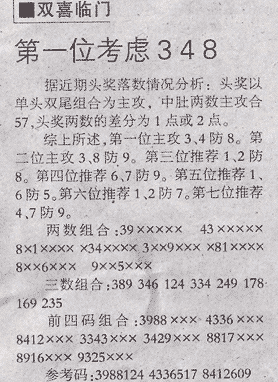 ■双喜临门
第一位考虑348
据近期头奖落数情况分析:头奖以
单头双尾组合为主攻，中肚两数主攻合
57,头奖两数的差分为1点或2点。
综上所述,第一位主攻3、4防8。第
二位主攻3、8防9。第三位推荐1、2防
8。第四位推荐6、7防9。第五位推荐1、
6防5。第六位推荐1、2防7。第七位推荐
4、7防9。
两数组合:39××××× 43×××××
8×1×××× ×34×××× 3××9××× ×81××××
8××6××× 9××5×××
三数组合:389 346 124 334 249 178
169 235
前四码组合:3988××× 4336×××
8412××× 3343××× 3429××× 8817×××
8916××× 9325×××
参考码:3988124 4336517 8412609